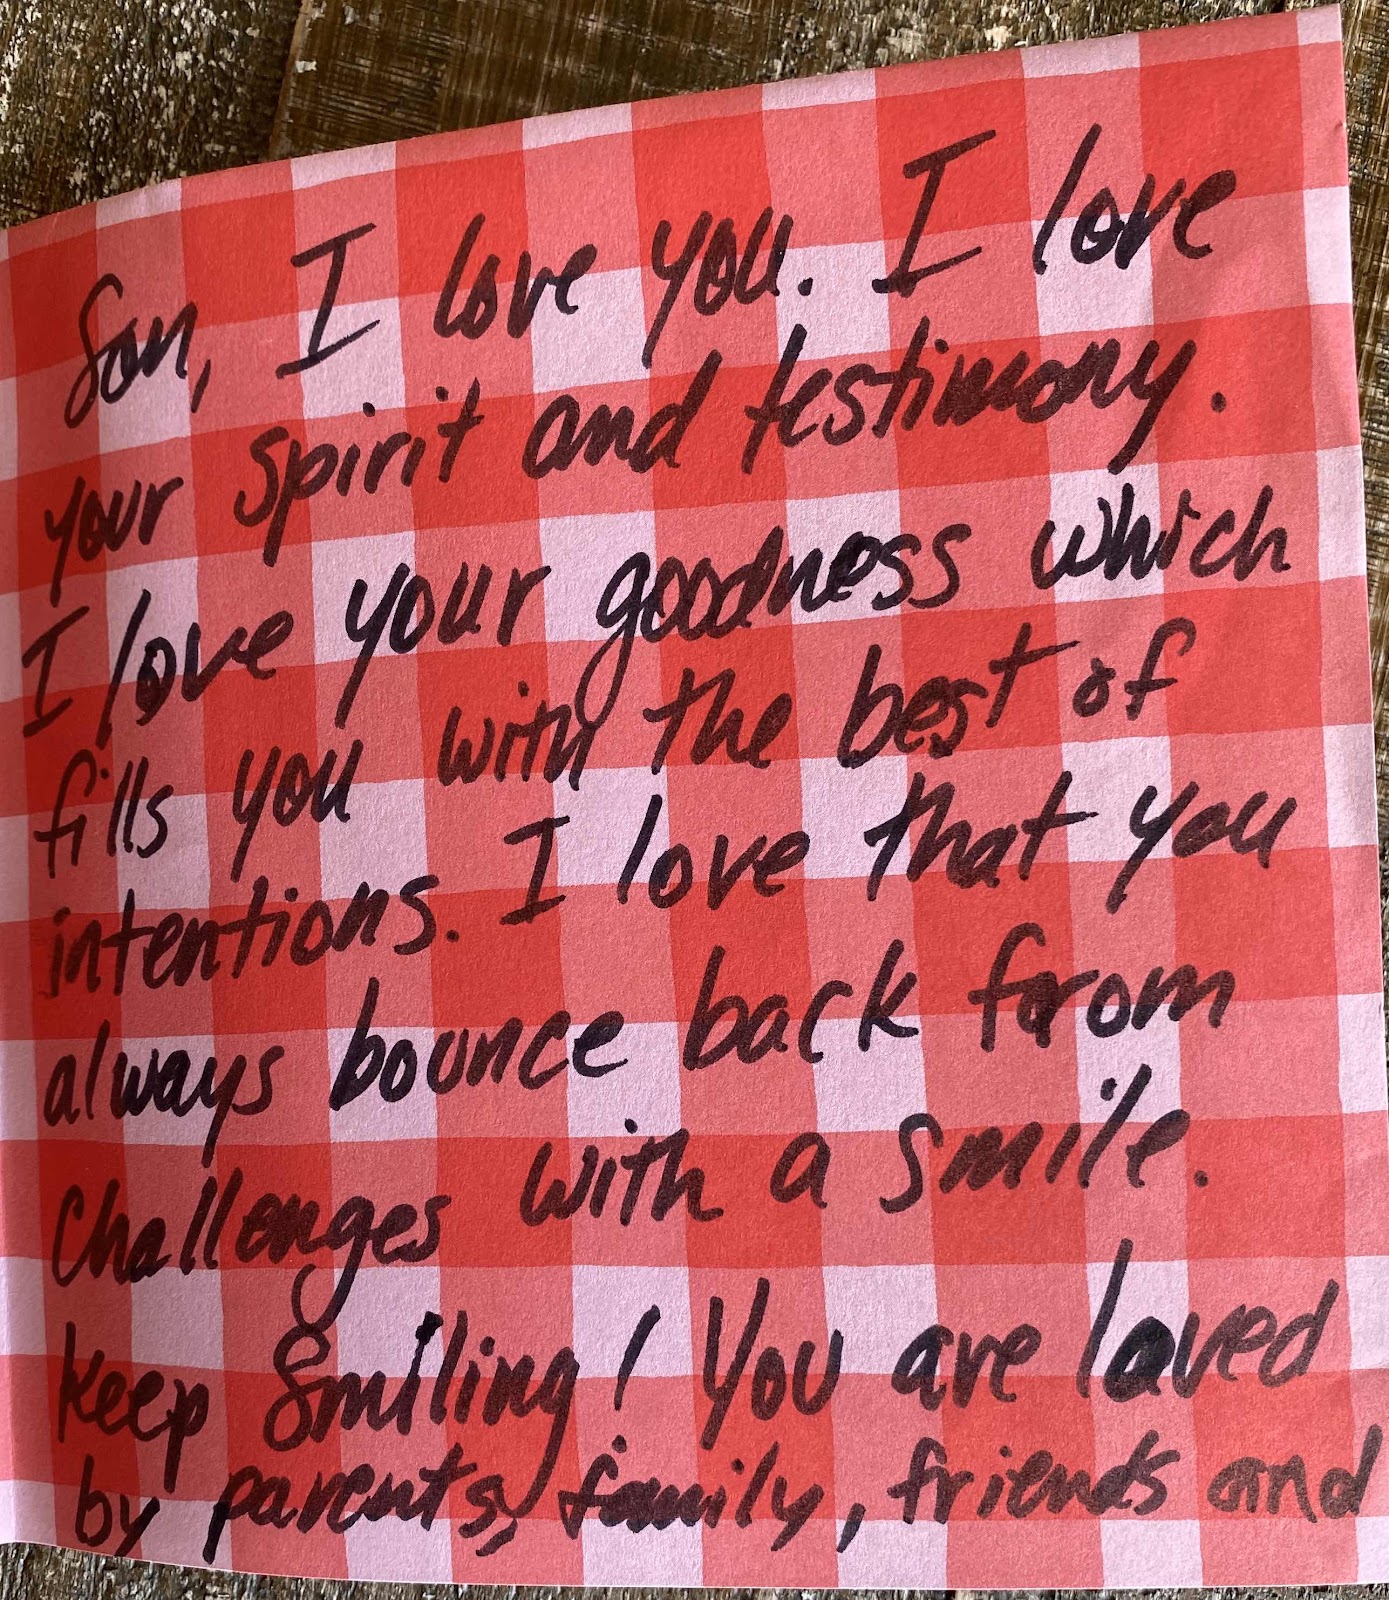 Son, I love you. I love
your spirit and testimony.
I love your goodness which
fills you with the best of
intentions. I love that you
always bounce back from
challenges with a smile.
Keep Smiling! You are loved
by parents, family, friends and